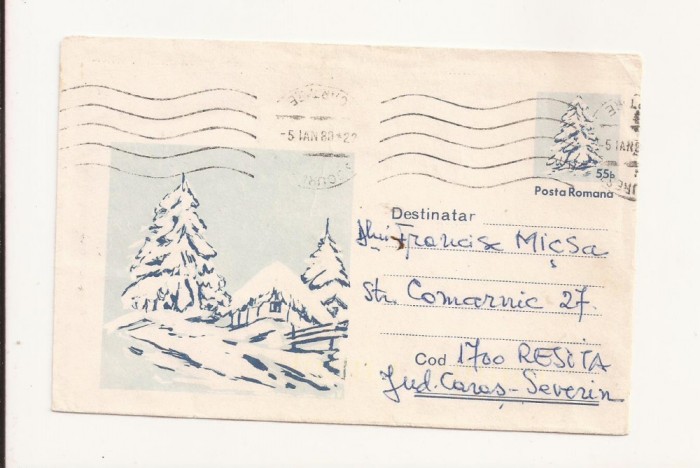 -5 IAN 8
-5 IAN
55b
Posta Romana
Destinatar
Francisc Micșa
str. Comarnic 27.
Cod 1700 RESITA
Jud. Caraș-Severin